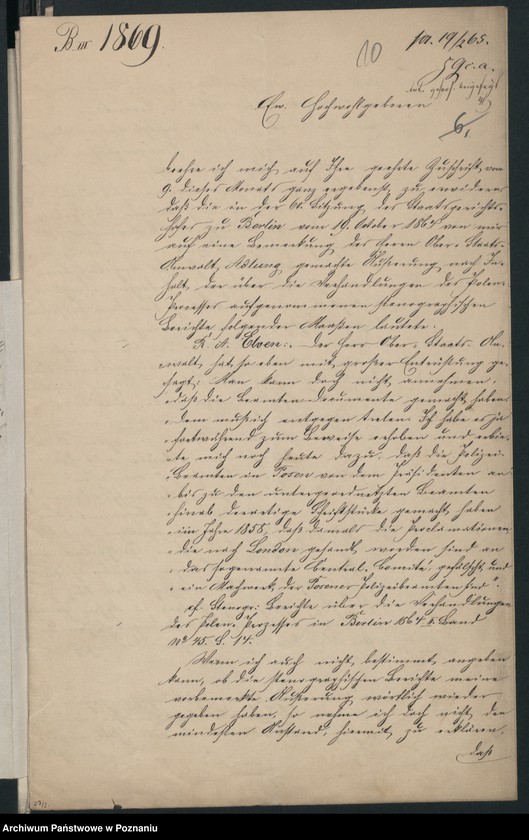 B III 1869.
10
pr. 19/2 65.
Ew. Hochwohlgeboren
6,
beehre ich mich auf Ihre geehrte Zuschrift vom
9. dieses Monats ganz ergebenst zu erwidern
daß die in der 61. Sitzung des Staatsgerichts-
hofes zu Berlin vom 19. October 1864 von mir
auf eine Bemerkung des Herrn Ober-Staats-
Anwalt Adlung gemachte Äußerung nach In-
halt der über die Verhandlungen des Polen-
Processes aufgenommenen stenographischen
Berichte folgender Maaßen lautete.
R. A. Elven: Der Herr Ober-Staats-An-
walt hat so eben mit großer Entrüstung ge-
sagt: Man kann doch nicht annehmen,
daß die Beamten Documente gemacht haben,
dem muß ich entgegen treten. Ich habe es ja
fortwährend zum Beweise erhoben und erbie-
te mich noch heute dazu, daß die Polizei-
Beamten in Posen von dem Präsidenten an
bis zu den untergeordnetsten Beamten
hinab derartige Schriftstücke gemacht haben
im Jahre 1858, daß damals die Proclamationen
die nach London gesandt worden sind an
das sogenannte Central-Comité gefälscht und
ein Machwerk der Posener Polizeibeamten sind".
cf. Stenogr: Berichte über die Verhandlungen
des Polen-Prozesses in Berlin 1864 Band
No 45. S. 14.
Wenn ich auch nicht bestimmt angeben
kann, ob die stenographischen Berichte meine
vorbemerkte Äußerung wörtlich wieder
gegeben haben, so nehme ich doch nicht den
mindesten Anstand, hiermit zu erklären,
daß
Archiwum Państwowe w Poznaniu